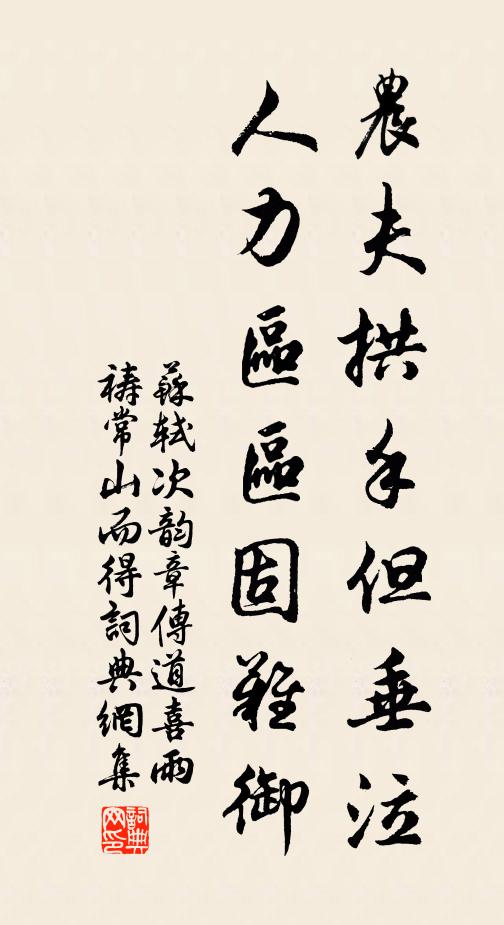 農夫拱手但垂泣
人力區區固難御
蘇軾次韵章傳道喜雨
禱常山而得詞典網集
詞典網印